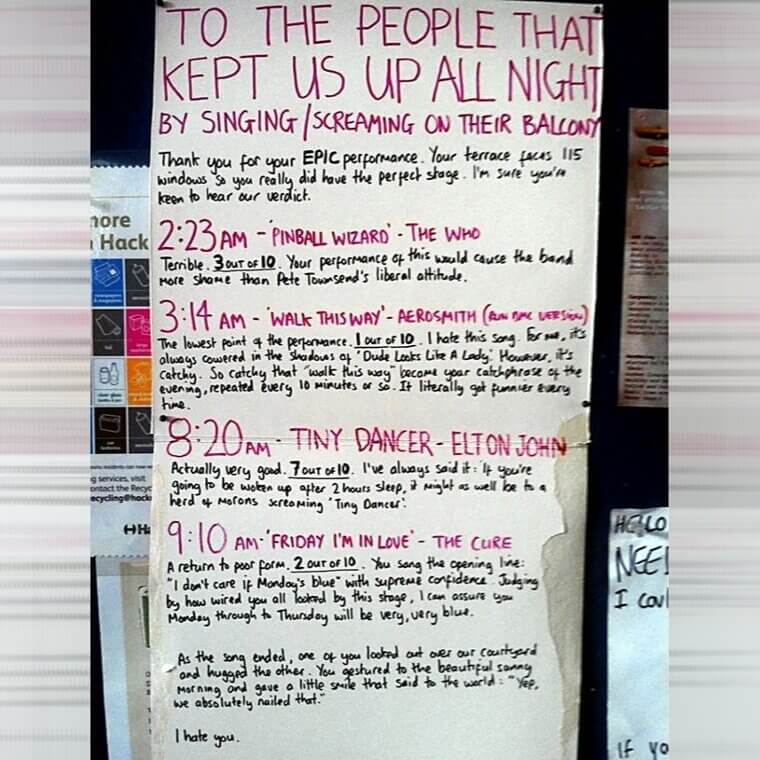 TO THE PEOPLE THAT
KEPT US UP ALL NIGHT
BY SINGING/SCREAMING ON THEIR BALCONY
Thank you for your EPIC performance. Your terrace faces 115
windows so you really did have the perfect stage. I'm sure you're
keen to hear our verdict.
2:23 AM - 'PINBALL WIZARD' - THE WHO
Terrible. 3 OUT OF 10. Your performance of this would cause the band
more shame than Pete Townsend's liberal attitude.
3:14 AM - 'WALK THIS WAY' - AEROSMITH (RUN DMC VERSION)
The lowest point of the performance. 1 out of 10. I hate this song. For me, it's
always cowered in the shadows of 'Dude Looks Like A Lady'. However, it's
catchy. So catchy that "walk this way" became your catchphrase of the
evening, repeated every 10 minutes or so. It literally got funnier every
time.
8:20 AM - TINY DANCER - ELTON JOHN
Actually very good. 7 OUT OF 10. I've always said it: 'If you're
going to be woken up after 2 hours sleep, it might as well be to a
herd of morons screaming 'Tiny Dancer'.
9:10 AM - 'FRIDAY I'M IN LOVE' - THE CURE
A return to poor form. 2 OUT OF 10. You sang the opening line:
"I don't care if Monday's blue" with supreme confidence. Judging
by how wired you all looked by this stage, I can assure you
Monday through to Thursday will be very, very blue.
As the song ended, one of you looked out over our courtyard
and hugged the other. You gestured to the beautiful sunny
morning and gave a little smile that said to the world: "Yep,
we absolutely nailed that."
I hate you.
more
Hack
ng services, visit
ontact the Recyc
ecycling@hack
HELLO
NEE
I coul
If yo